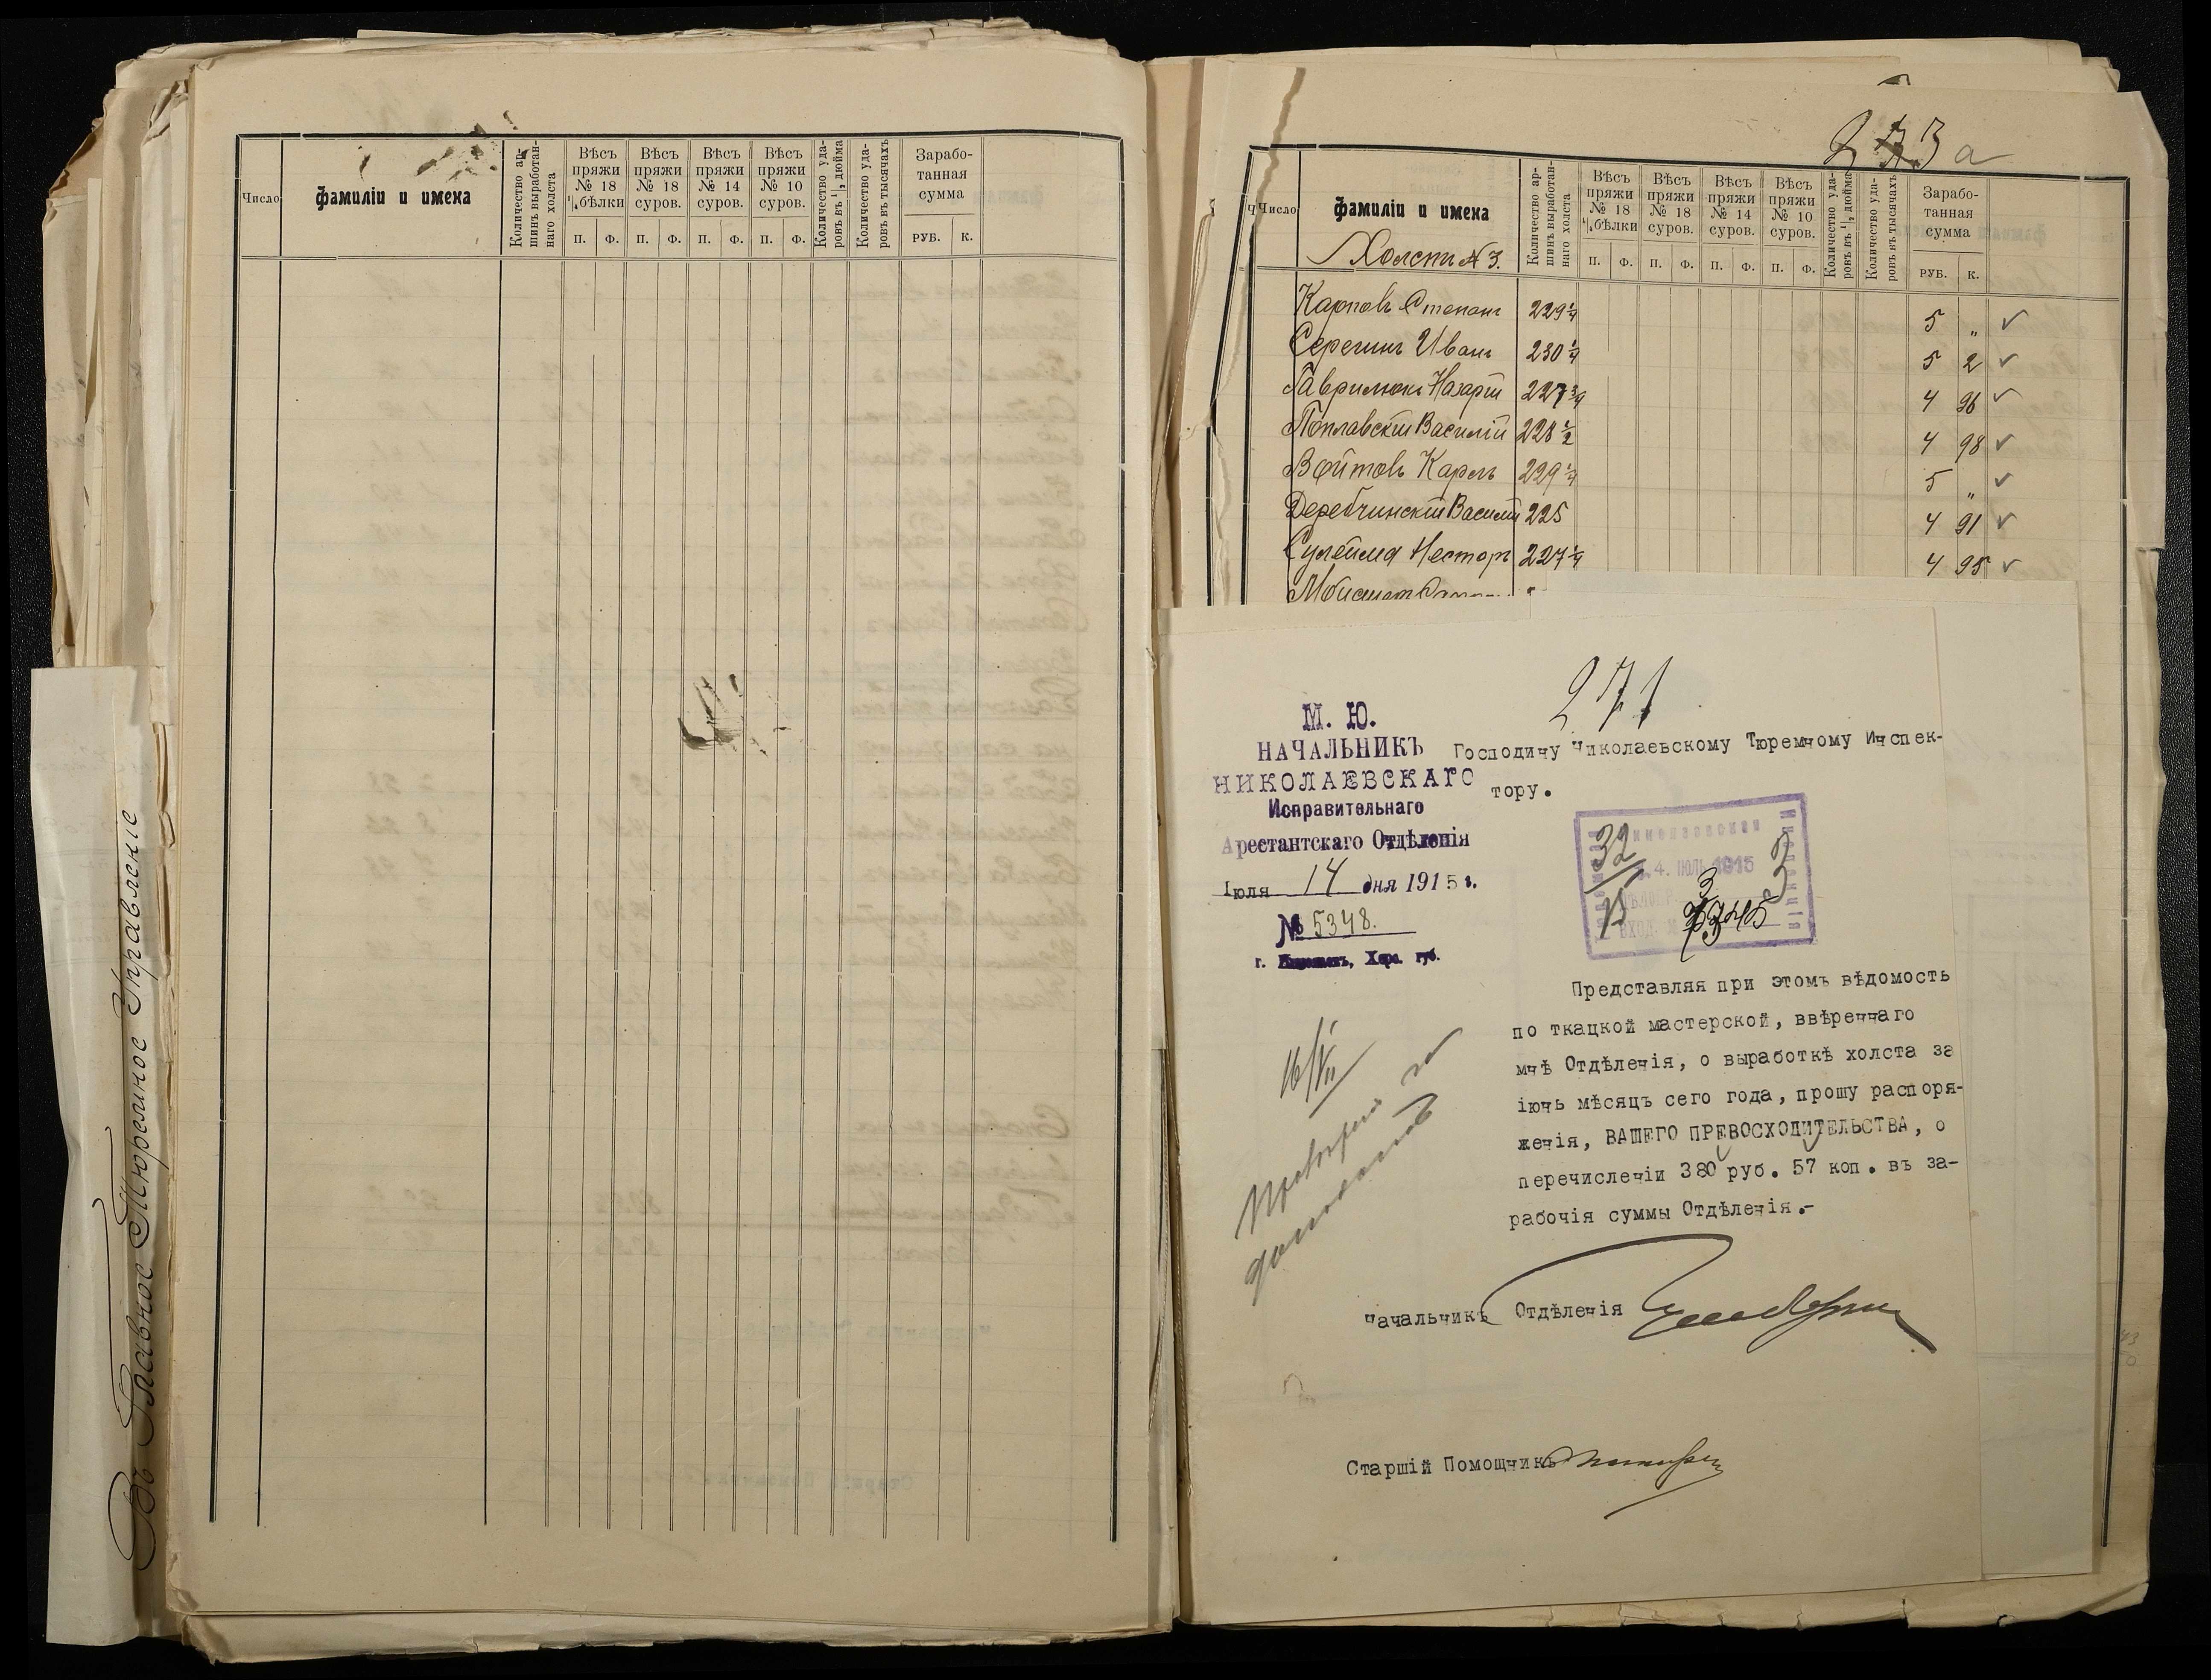 Въ Главное Тюремное Управленіе
Число
Фамиліи и имена
Количество ар-
шинъ выработан-
наго холста
Вѣсъ
пряжи
№ 18
¼ бѣлки
Вѣсъ
пряжи
№ 18
суров.
Вѣсъ
пряжи
№ 14
суров.
Вѣсъ
пряжи
№ 10
суров.
П. Ф. П. Ф. П. Ф. П. Ф.
Количество уда-
ровъ въ ¼ дюйма
Количество уда-
ровъ въ тысячахъ
Зарабо-
танная
сумма
РУБ. К.
273а
Число
Фамиліи и имена
Холстъ № 3.
Количество ар-
шинъ выработан-
наго холста
Вѣсъ
пряжи
№ 18
¼ бѣлки
Вѣсъ
пряжи
№ 18
суров.
Вѣсъ
пряжи
№ 14
суров.
Вѣсъ
пряжи
№ 10
суров.
П. Ф. П. Ф. П. Ф. П. Ф.
Количество уда-
ровъ въ ¼ дюйма
Количество уда-
ровъ въ тысячахъ
Зарабо-
танная
сумма
РУБ. К.
Карповъ Степанъ 229¼ 5 „
Серегинъ Иванъ 230¼ 5 2
Гаврилюкъ Назарій 227¾ 4 96
Поплавскій Василій 228½ 4 98
Войтовъ Карпъ 229¼ 5 „
Деребчинскій Василій 225 4 91
Сулейма Несторъ 227¼ 4 95
271
М. Ю.
НАЧАЛЬНИКЪ
НИКОЛАЕВСКАГО
Исправительнаго
Арестантскаго Отдѣленія
Іюля 14 дня 1915 г.
№ 5348.
г. Николаевъ, Хер. губ.
Господину Николаевскому Тюремному Инспек-
тору.
4. ІЮЛЬ 1915
32
Представляя при этомъ вѣдомость
по ткацкой мастерской, ввѣреннаго
мнѣ Отдѣленія, о выработкѣ холста за
іюнь мѣсяцъ сего года, прошу распоря-
женія, ВАШЕГО ПРЕВОСХОДИТЕЛЬСТВА, о
перечисленіи 380 руб. 57 коп. въ за-
рабочія суммы Отдѣленія.-
16/VII
Начальникъ Отдѣленія
Старшій Помощникъ